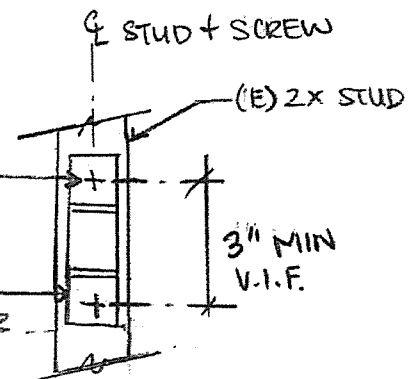 ℄ STUD + SCREW
(E) 2X STUD
3" MIN
V.I.F.